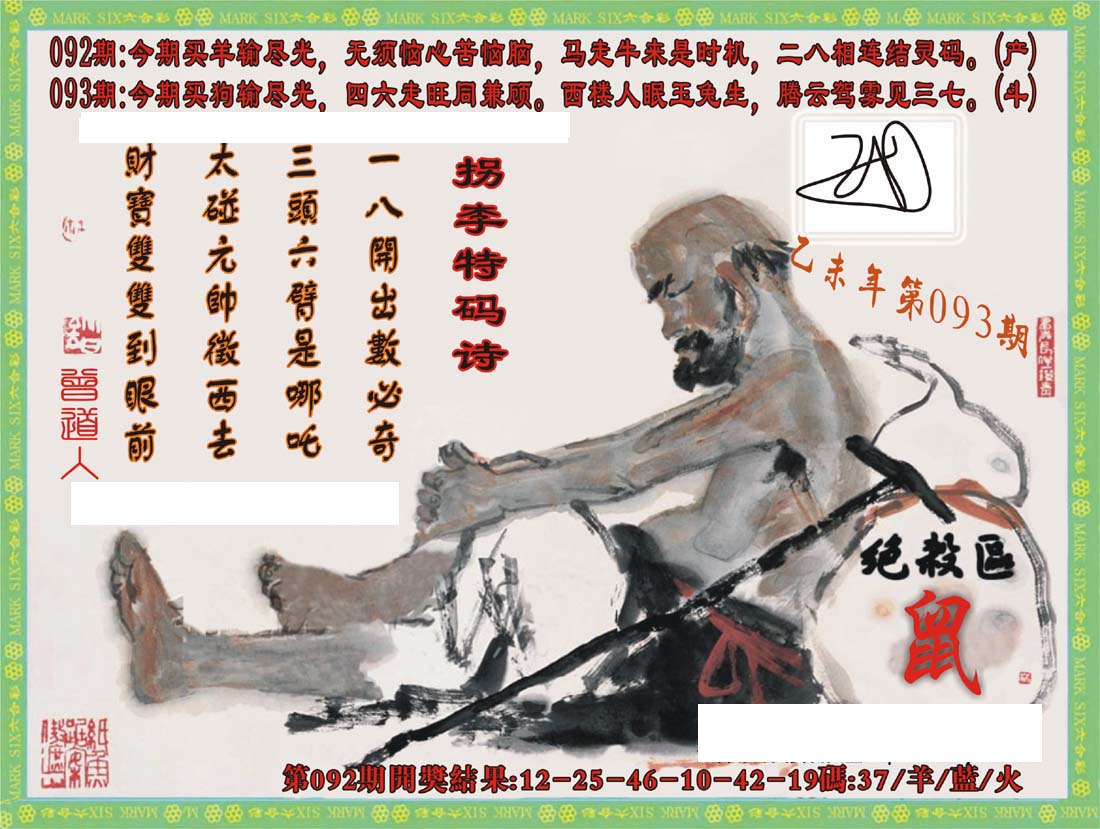 092期:今期买羊输尽光，无须恼心苦恼脑，马走牛来是时机，二八相连结灵码。(产)
093期:今期买狗输尽光，四六走旺同兼顾。西楼人眠玉兔生，腾云驾雾见三七。(斗)
拐李特码诗
一八開出數必奇
三頭六臂是哪吒
太碰元帥徵西去
財寶雙雙到眼前
乙未年第093期
曾道人
绝殺區
鼠
第092期開獎結果:12-25-46-10-42-19碼:37/羊/藍/火
MARK SIX六合彩